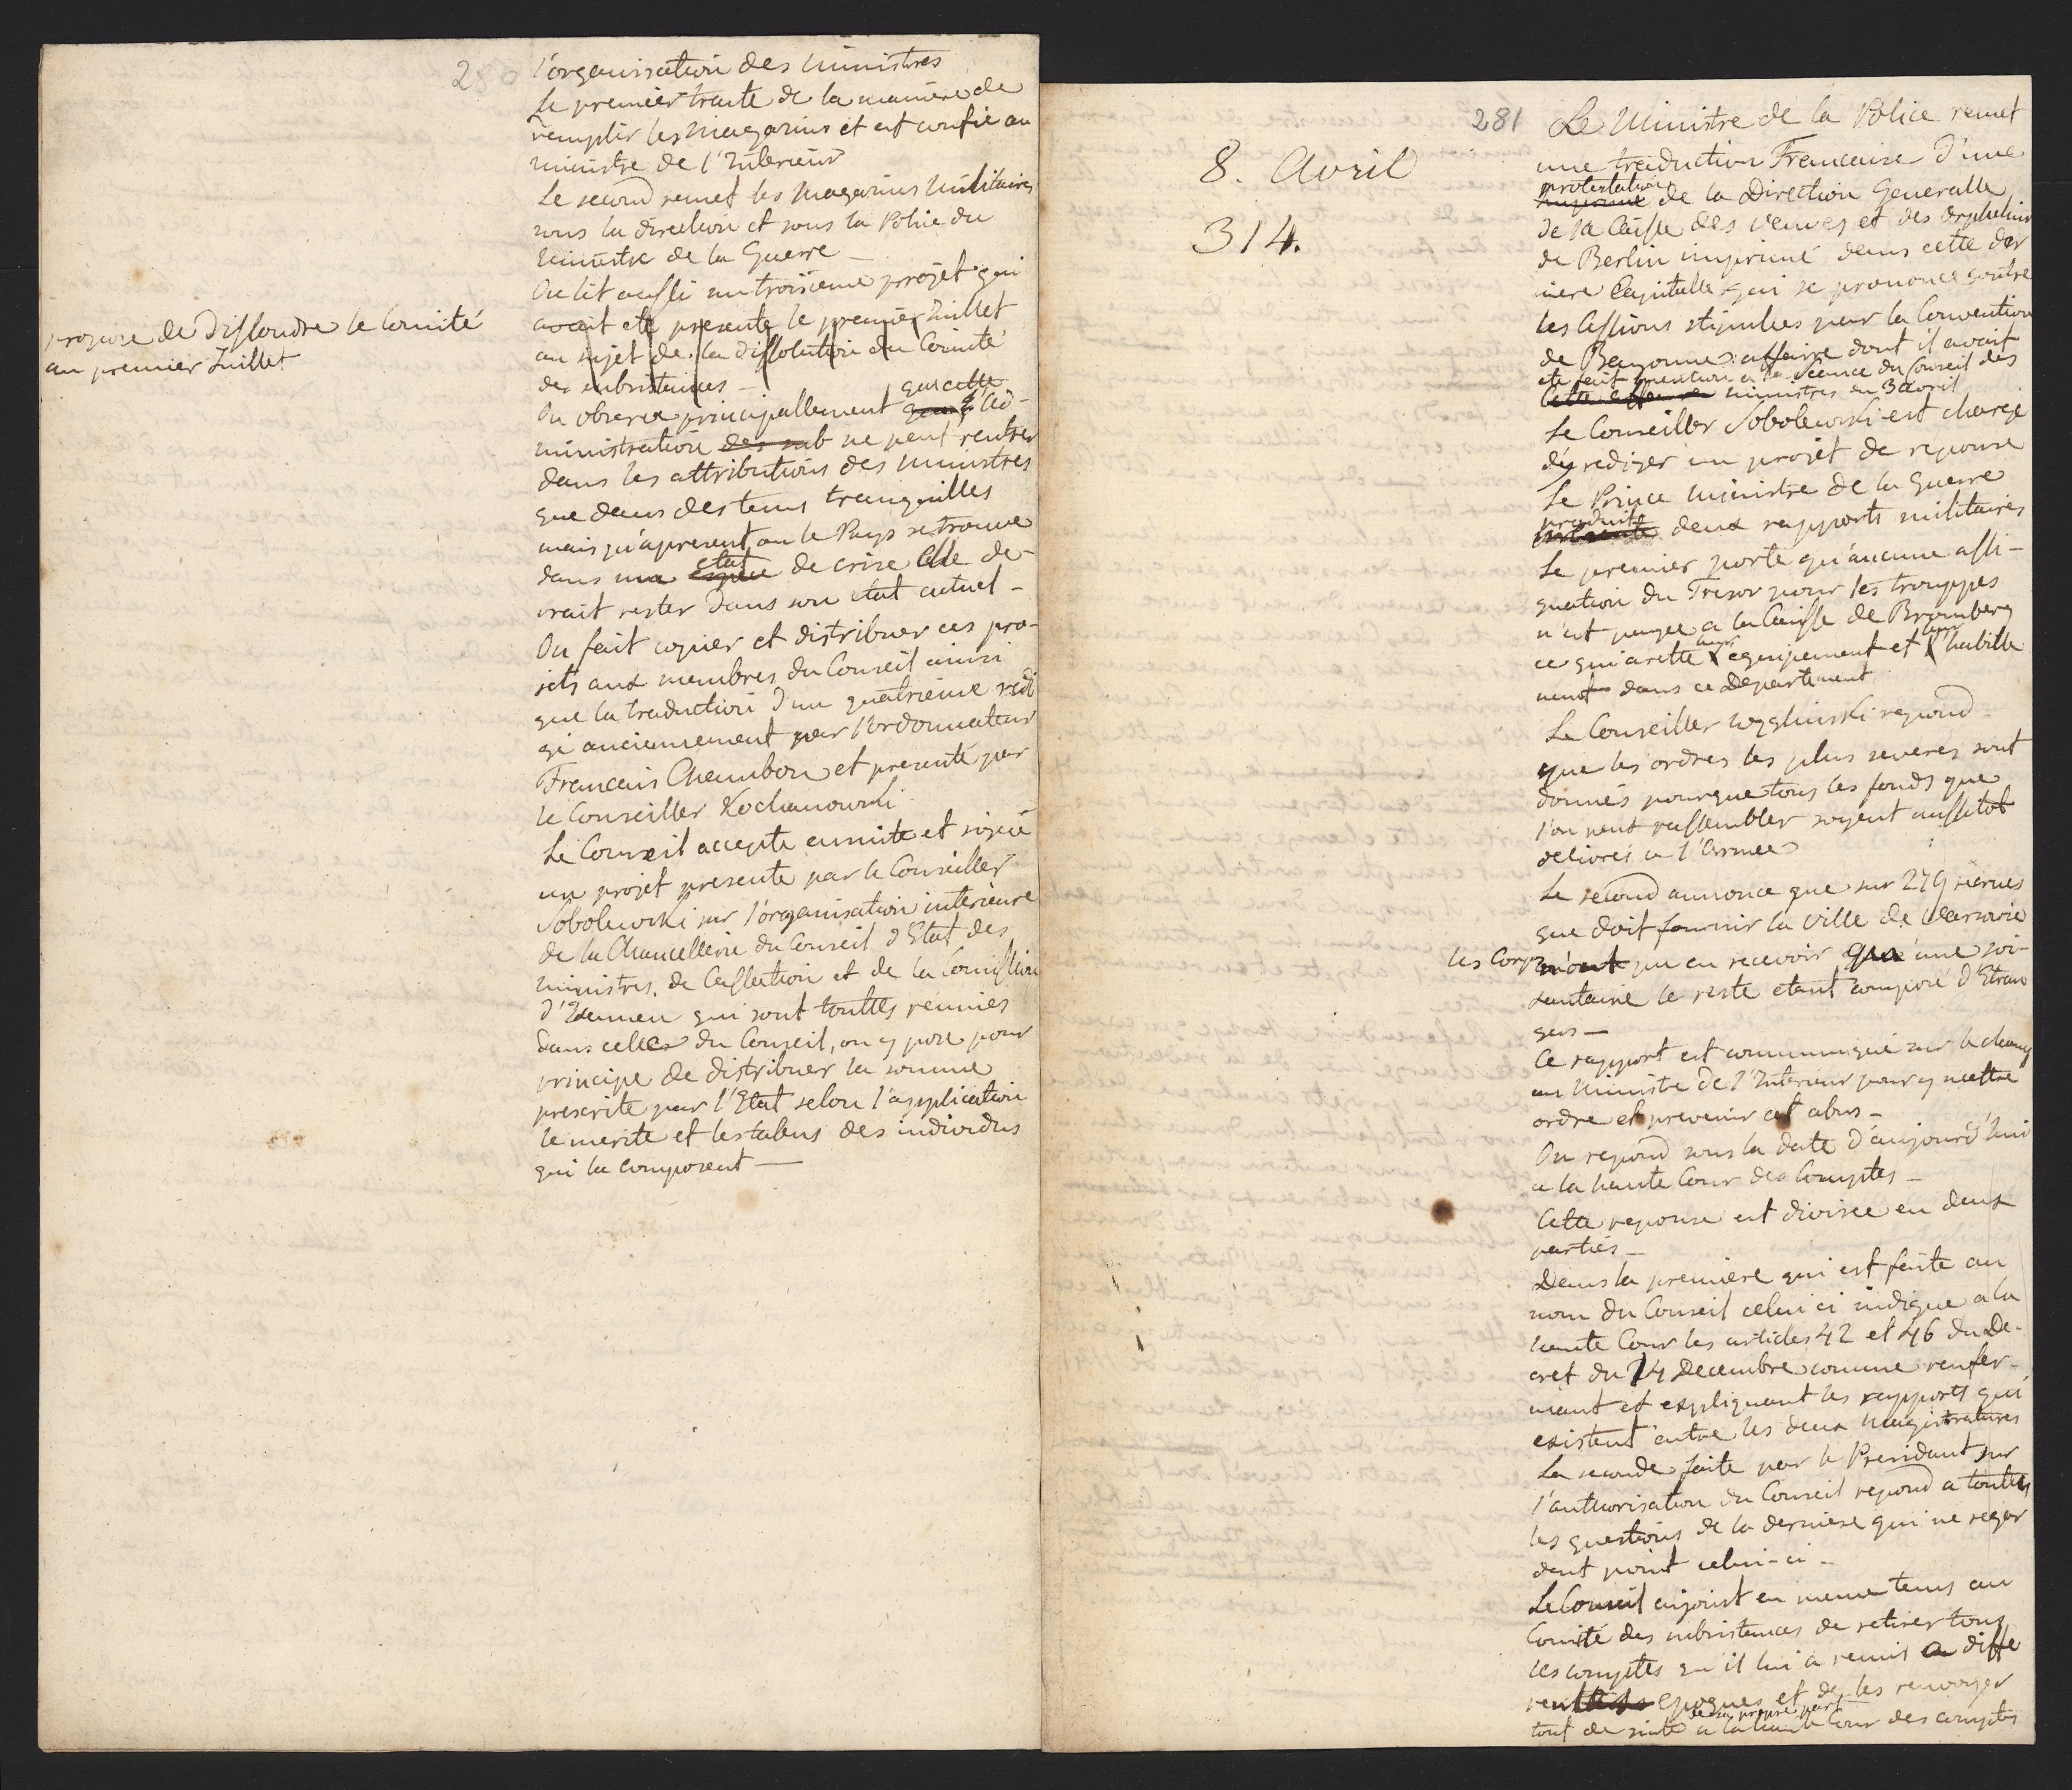 280
l'organisation des ministres
Le premier traite de la maniere de
remplir les magazins et est confié au
ministre de l'Interieur
Le second remet les magazins militaires
sous la direction et sous la Police du
ministre de la Guerre _
On lit aussi un troisieme projet qui
avait ete presente le premier Juillet
au sujet de la dissolution du Comité
des subsistances _
propose de dissoudre le Comité
au premier Juillet
On observe principallement que cette ad-
ministration des sub ne peut rentrer
dans les attributions des ministres
que dans des tems tranquilles
mais qu'apresent ou le Pays se trouve
dans un etat de crise elle de-
vrait rester dans son etat actuel _
On fait copier et distribuer ces pro-
jets aux membres du Conseil ainsi
que la traduction d'un quatrieme redi
gé anciennement par l'ordonnateur
Francais Chambon et presenté par
le Conseiller Kochanowski
Le Conseil accepte ensuite et signe
un projet presente par le Conseiller
Sobolewski sur l'organisation interieure
de la Chancellerie du Conseil d'Etat des
ministres, de Cassation et de la Comission
d'Examen qui sont touttes reunies
dans celles du Conseil, on y pose pour
principe de distribuer la somme
prescrite par l'Etat selon l'application
le merite et les talens des individus
qui la composent _
281
8. Avril
314.
Le Ministre de la Police remet
une traduction Francaise d'une
protestation
imprimé de la Direction Generalle
de la Caisse des veuves et des orphelins
de Berlin imprimé dans cette der
niere Capitalle qui se prononce contre
les Cessions stipulees par la Convention
de Bayonne: affaire dont il avait
ete fait mention a la Seance du Conseil des
ministres du 3 avril
Le Conseiller Sobolewski est chargé
d'y rediger un projet de reponse
Le Prince Ministre de la Guerre
produit
presente deux rapports militaires
Le premier porte qu'aucune assi-
gnation du Tresor pour les trouppes
n'est payee a la Caisse de Bromberg
ce qui arette leur equipement et leur habille
ment dans ce Departement
Le Conseiller Węgliński repond
que les ordres les plus severes sont
donnés pour que tous les fonds que
l'on peut rassembler soyent aussitot
delivrés a l'Armee
Le second annonce que sur 279 recrues
que doit fournir la ville de Varsovie
les Corps n'ont pu en recevoir qu'une soi-
xantaine le reste etant composé d'Etran
gers _
Ce rapport est communiqué sur le champ
au Ministre de l'Interieur pour y mettre
ordre et prevenir cet abus _
On repond sous la date d'aujourd'hui
a la haute Cour des Comptes _
Cette reponse est divisee en deux
parties _
Dans la premiere qui est faite au
nom du Conseil celui ci indique a la
haute Cour les articles 42 et 46 du De-
cret du 24 Decembre comme renfer-
mant et expliquant les rapports qui
existent entre les deux magistratures
La seconde faite par le President sur
l'authorisation du Conseil repond a touttes
les questions de la derniere qui ne regar
dent point celui-ci _
Le Conseil enjoint en meme tems au
Comité des subsistances de retirer tous
les comptes qu'il lui a remis a diffe
rentes epoques et de les renvoyer
de sa propre part
tout de suite a la haute Cour des comptes